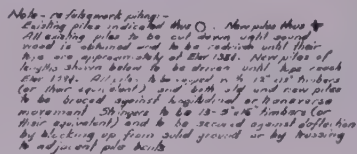 Note - re falsework piling:-
Existing piles indicated thus O. New piles thus
All existing piles to be cut down until sound
wood is obtained and to be redriven until their
tops are approximately at Elev 1384. New piles of
lengths shown below to be driven until tops reach
Elev 1384. All piles to be capped 12" timbers
(or their equivalent) and both old and new piles
to be braced against longitudinal or transverse
movement. Stringers to be timbers (or
their equivalent) and to be secured against deflection
by blocking up from solid ground or by trussing
to adjacent pile bents